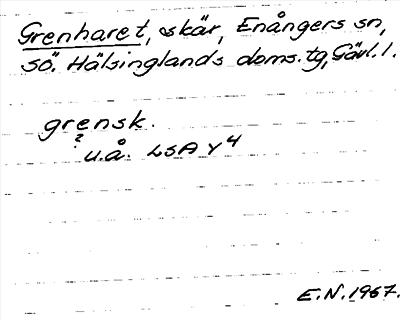 Grenharet, skär, Enångers sn,
sö. Hälsinglands doms. tg, Gävl. l.
grensk.
? u.å. LSA Y 4
E.N. 1967.